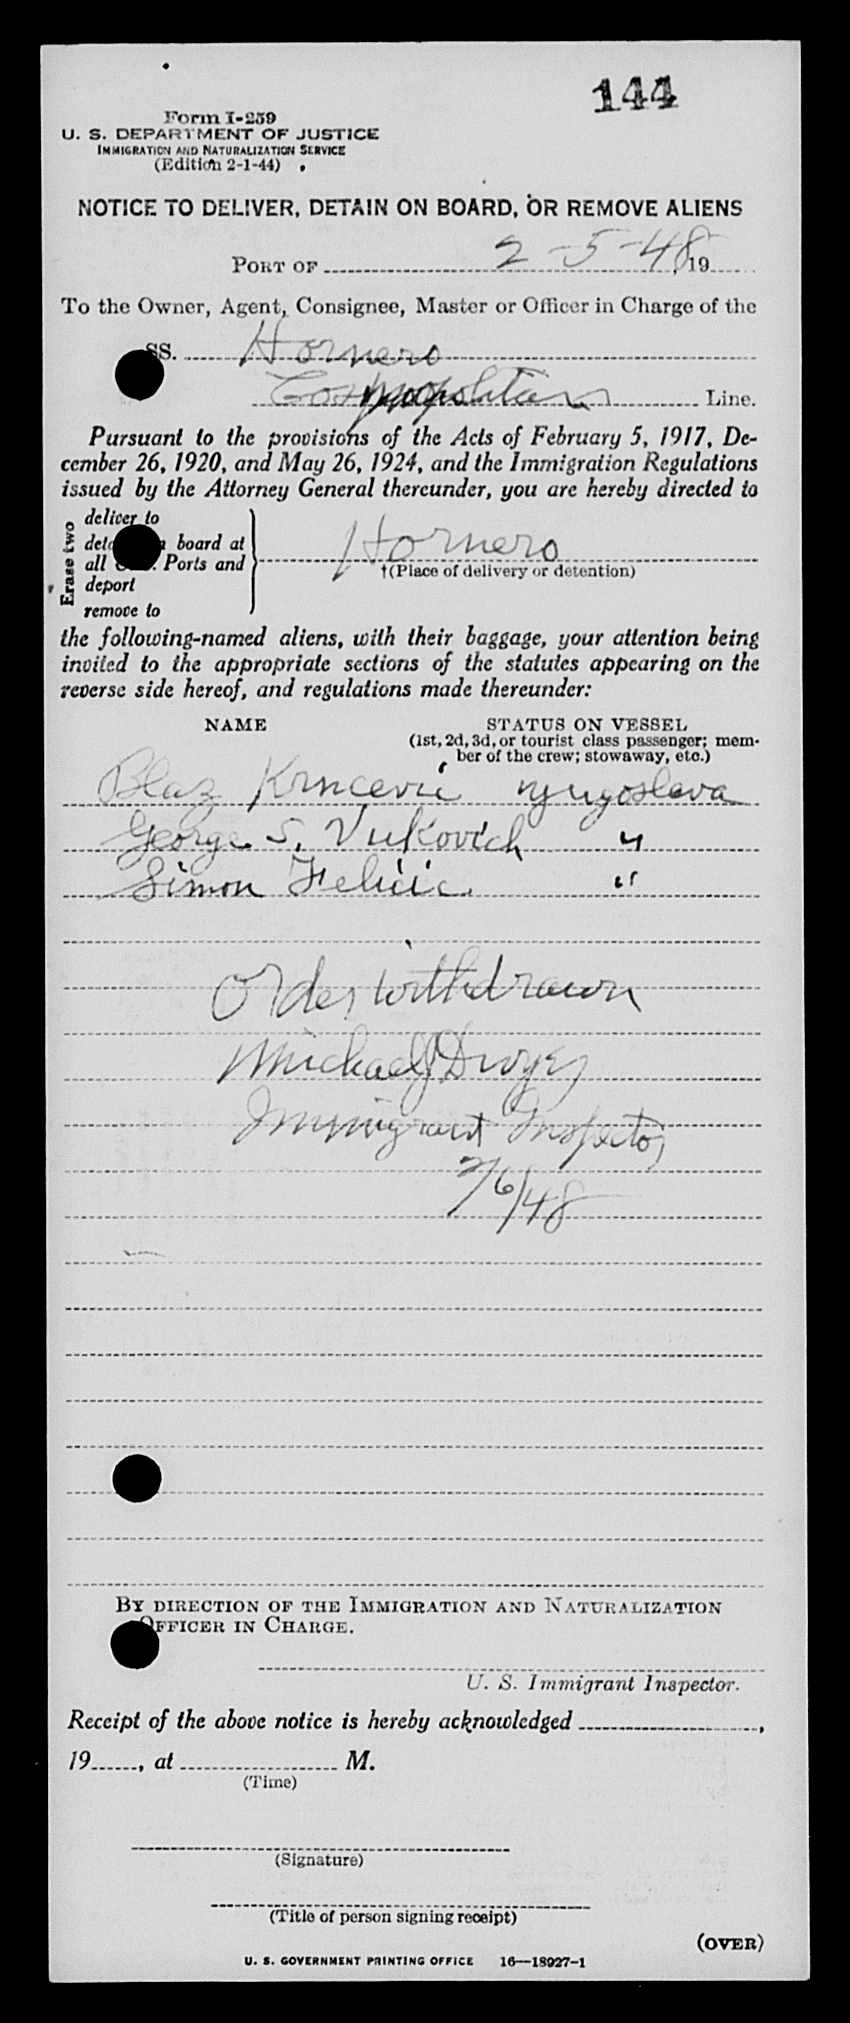 144
Form I-259
U. S. DEPARTMENT OF JUSTICE
IMMIGRATION AND NATURALIZATION SERVICE
(Edition 2-1-44)
NOTICE TO DELIVER, DETAIN ON BOARD, OR REMOVE ALIENS
PORT OF 2-5-48, 19
To the Owner, Agent, Consignee, Master or Officer in Charge of the
SS. Hornero
Cosmopolitan Line.
Pursuant to the provisions of the Acts of February 5, 1917, De-
cember 26, 1920, and May 26, 1924, and the Immigration Regulations
issued by the Attorney General thereunder, you are hereby directed to
Erase two
deliver to
board at
all Ports and
deport
remove to
Hornero
†(Place of delivery or detention)
the following-named aliens, with their baggage, your attention being
invited to the appropriate sections of the statutes appearing on the
reverse side hereof, and regulations made thereunder:
NAME STATUS ON VESSEL
(1st, 2d, 3d, or tourist class passenger; mem-
ber of the crew; stowaway, etc.)
Blaz Krncevic yugoslava
George S. Vukovich "
Simon Felicic "
Order withdrawn
Michael J Dwyer
Immigrant Inspector
2/6/48
BY DIRECTION OF THE IMMIGRATION AND NATURALIZATION
OFFICER IN CHARGE.
U. S. Immigrant Inspector.
Receipt of the above notice is hereby acknowledged ,
19 , at M.
(Time)
(Signature)
(Title of person signing receipt)
(OVER)
U. S. GOVERNMENT PRINTING OFFICE 16—18927-1